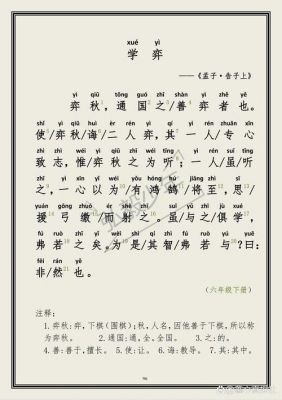 xué yì
学 弈
——《孟子·告子上》
yì qiū tōng guó zhī shàn yì zhě yě
弈秋,通国之/善弈者也。
shǐ yì qiū huì èr rén yì qí yì rén zhuān xīn
使/弈秋/诲/二人弈,其一人/专心
zhì zhì wéi yì qiū zhī wéi tīng yì rén suī tīng
致志,惟/弈秋之为听;一人/虽/听
zhī yì xīn yǐ wéi yǒu hóng hú jiāng zhì sī
之,一心以为有鸿鹄将至,思/
yuán gōng zhuó ér shè zhī suī yǔ zhī jù xué
援弓缴而射之。虽/与之俱学,
fú ruò zhī yǐ wèi shì qí zhì fú ruò yú yuē
弗若之矣。为是/其智/弗若与?曰:
fēi rán yě
非/然也。
(六年级下册)
注释:
1.弈秋:弈,下棋(围棋);秋,人名,因他善于下棋,所以称
为弈秋。 2.通国:通,全,全国。 3.之:的。
4.善:善于,擅长。 5.使:让。 6.诲:教导。 7.其:其中。